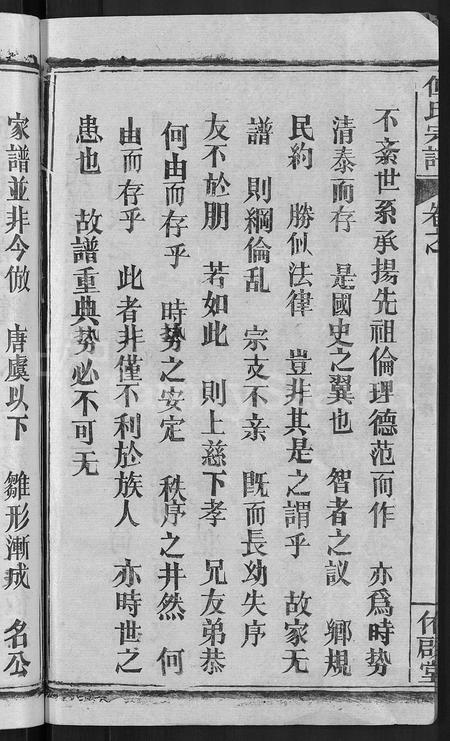 氏宗譜
卷之
不紊世系承揚先祖倫理德范而作 亦爲時勢
清泰而存 是國史之翼也 智者之议 鄉規
民約 勝似法律 豈非其是之謂乎 故家无
譜 則綱倫乱 宗支不亲 既而長幼失序
友不於朋 若如此 則上慈下孝 兄友弟恭
何由而存乎 時勢之安定 秩序之井然 何
由而存乎 此者非僅不利於族人 亦時世之
患也 故譜重典势必不可无
家譜並非今倣 唐虞以下 雛形漸成 名公